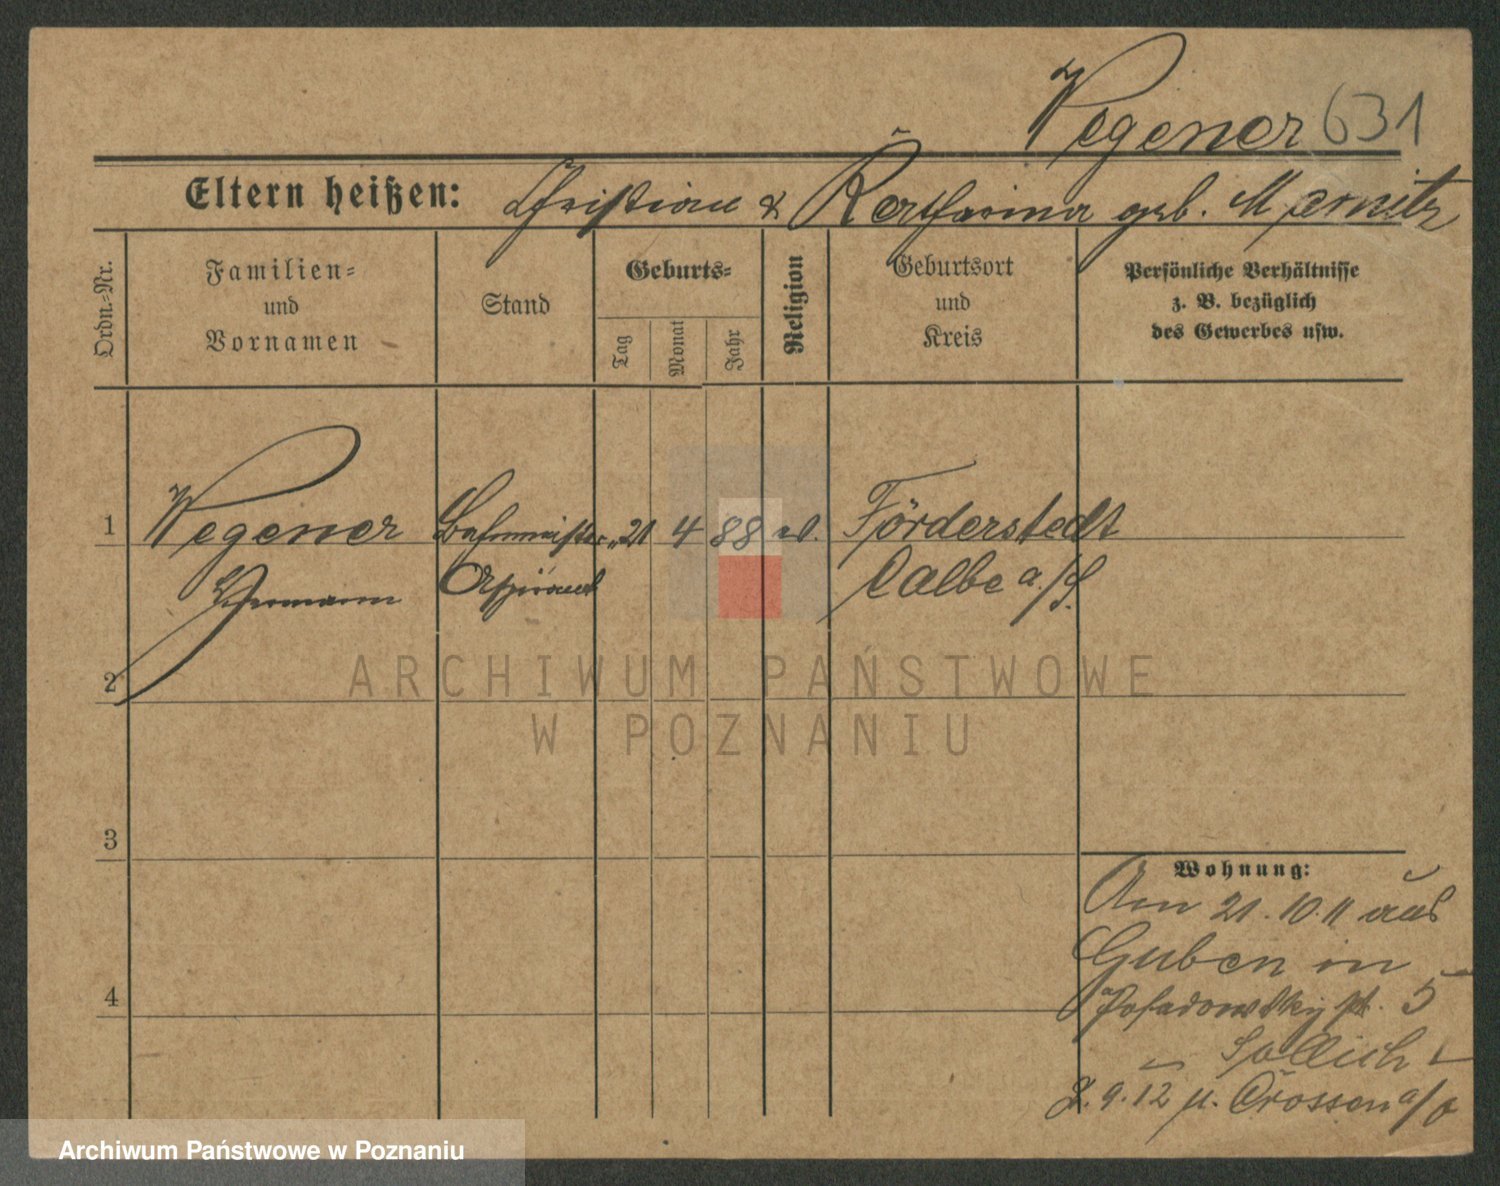 Wegener 631
Eltern heißen: Christian & Katharina geb. Marnitz
Ordn.=Nr.
Familien=
und
Vornamen
Stand
Geburts=
Tag
Monat
Jahr
Religion
Geburtsort
und
Kreis
Persönliche Verhältnisse
z. B. bezüglich
des Gewerbes usw.
1 Wegener Bahnmeister 21 4 88 ev. Förderstedt
Hermann Aspirant Calbe a./S.
2
ARCHIWUM PAŃSTWOWE
W POZNANIU
3
Wohnung:
Am 21.10.11 aus
Guben in
4
Posadowsky str. 5
Sallich
9.12 n. Crossen a/o
Archiwum Państwowe w Poznaniu